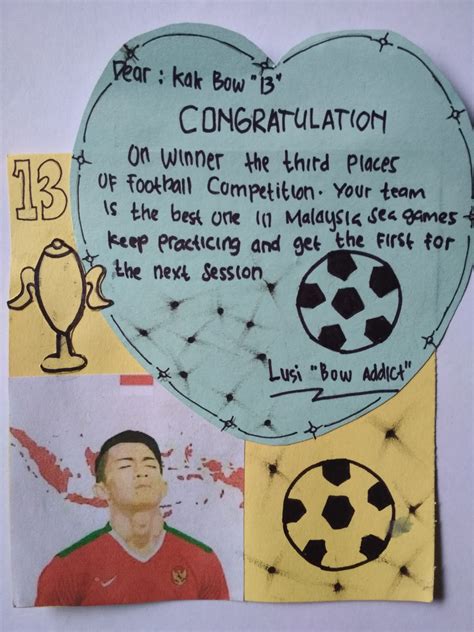 Dear : Kak Bow "13"
CONGRATULATION
On Winner the third Places
Of Football Competition. Your team
is the best one in Malaysia Sea games
keep practicing and get the first for
the next session
Lusi "Bow Addict"
13